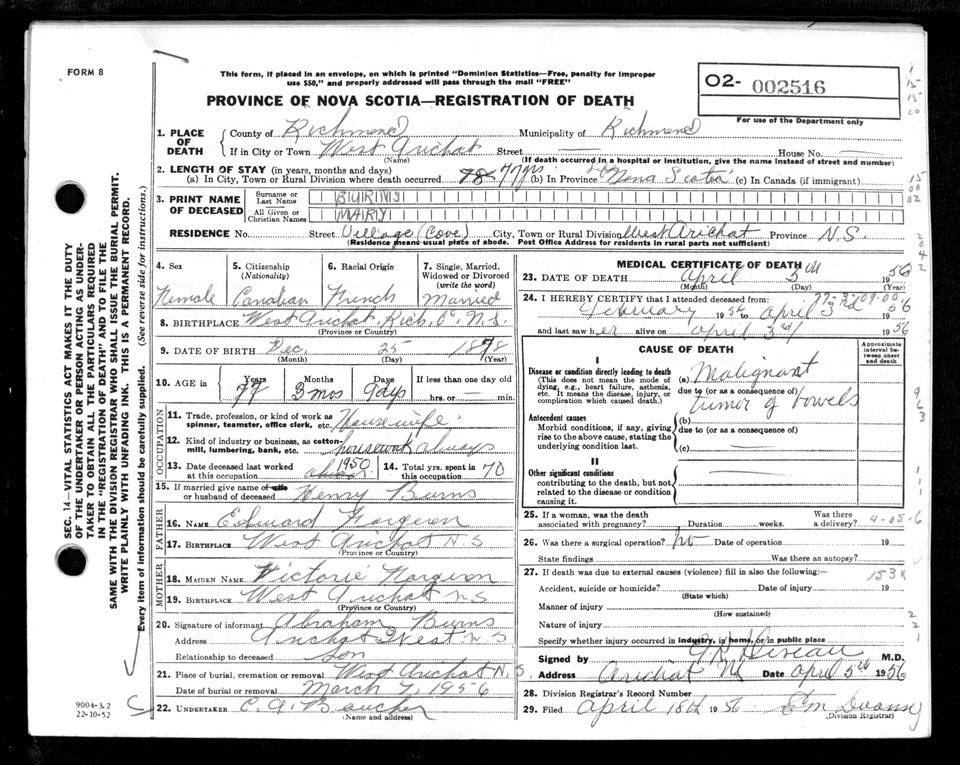 FORM 8
This form, if placed in an envelope, on which is printed "Dominion Statistics—Free, penalty for improper
use $50," and properly addressed will pass through the mail "FREE"
PROVINCE OF NOVA SCOTIA—REGISTRATION OF DEATH
02- 002516
For use of the Department only
1. PLACE OF DEATH
County of Richmond Municipality of Richmond
If in City or Town West Arichat Street — House No. —
(Name) (If death occurred in a hospital or institution, give the name instead of street and number)
2. LENGTH OF STAY (in years, months and days)
(a) In City, Town or Rural Division where death occurred 78 77 yrs (b) In Province Nova Scotia (c) In Canada (if immigrant)
3. PRINT NAME OF DECEASED
Surname or Last Name BURNS
All Given or Christian Names MARY
RESIDENCE No. Street Village (Cove) City, Town or Rural Division West Arichat Province N.S.
(Residence means usual place of abode. Post Office Address for residents in rural parts not sufficient)
4. Sex
Female
5. Citizenship
(Nationality)
Canadian
6. Racial Origin
French
7. Single, Married, Widowed or Divorced
(write the word)
Married
8. BIRTHPLACE West Arichat, Rich. Co. N.S.
(Province or Country)
9. DATE OF BIRTH Dec. 25 1878
(Month) (Day) (Year)
10. AGE in
Years Months Days If less than one day old
77 3 mos 9 days hrs. or — min.
OCCUPATION
11. Trade, profession, or kind of work as
spinner, teamster, office clerk, etc. Housewife
12. Kind of industry or business, as cotton-
mill, lumbering, bank, etc. housework always
13. Date deceased last worked
at this occupation 1950
14. Total yrs. spent in
this occupation 70
15. If married give name of wife
or husband of deceased Henry Burns
FATHER
16. NAME Edward Forgeron
17. BIRTHPLACE West Arichat N.S
(Province or Country)
MOTHER
18. MAIDEN NAME Victorie Forgeron
19. BIRTHPLACE West Arichat N S
(Province or Country)
20. Signature of informant Abraham Burns
Address Arichat West N S
Relationship to deceased Son
21. Place of burial, cremation or removal West Arichat N.S.
Date of burial or removal March 7, 1956
22. UNDERTAKER C. A. Boucher
(Name and address)
MEDICAL CERTIFICATE OF DEATH
23. DATE OF DEATH April 5th 1956
(Month) (Day) (Year)
24. I HEREBY CERTIFY that I attended deceased from
February 1956 to April 3rd 1956
and last saw her alive on April 3rd 1956
CAUSE OF DEATH
Approximate interval between onset and death
I
Disease or condition directly leading to death
(This does not mean the mode of
dying, e.g., heart failure, asthenia,
etc. It means the disease, injury, or
complication which caused death.)
(a) Malignant
due to (or as a consequence of)
tumor of bowels
Antecedent causes
Morbid conditions, if any, giving
rise to the above cause, stating the
underlying condition last.
(b)
due to (or as a consequence of)
(c)
II
Other significant conditions
contributing to the death, but not
related to the disease or condition
causing it.
25. If a woman, was the death
associated with pregnancy? Duration weeks. Was there a delivery?
4-05-6
26. Was there a surgical operation? no Date of operation 19
State findings Was there an autopsy?
27. If death was due to external causes (violence) fill in also the following:—
153X
Accident, suicide or homicide? Date of injury 19
(State which)
Manner of injury
(How sustained)
Nature of injury
Specify whether injury occurred in industry, in home, or in public place
Signed by M.D.
Address Arichat Date April 5th 1956
28. Division Registrar's Record Number
29. Filed April 18th 1956
(Division Registrar)
SEC. 14—VITAL STATISTICS ACT MAKES IT THE DUTY
OF THE UNDERTAKER OR PERSON ACTING AS UNDER-
TAKER TO OBTAIN ALL THE PARTICULARS REQUIRED
IN THE "REGISTRATION OF DEATH" AND TO FILE THE
SAME WITH THE DIVISION REGISTRAR WHO SHALL ISSUE THE BURIAL PERMIT.
WRITE PLAINLY WITH UNFADING INK. THIS IS A PERMANENT RECORD.
Every item of information should be carefully supplied. (See reverse side for instructions.)
9004-3.2
22-10-52